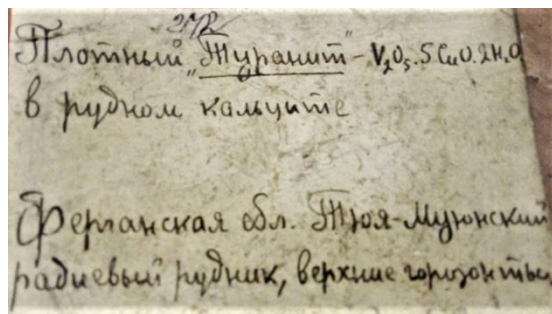 Плотный „Туранит“ – V₂O₅·5CuO·2H₂O
в рудном кальците
Ферганская обл. Тюя-Муюнский
радиевый рудник, верхние горизонты.